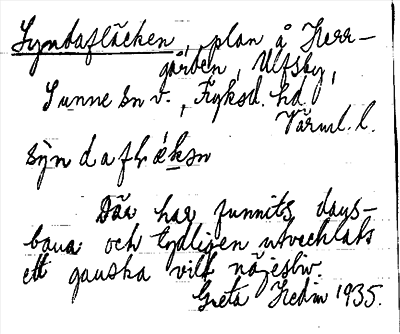 Syndafläcken, plan å Herr-
gården, Ulfsby,
Sunne sn v., Fryksd. hd.
Värml. l.
sỳndaflǽkən
Där har funnits dans-
bana och tydligen utvecklats
ett ganska vilt nöjesliv.
Greta Hedin 1935.